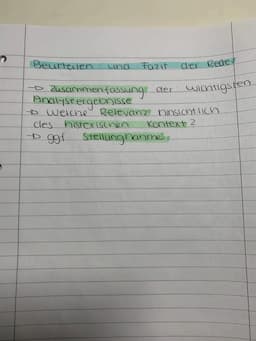 Beurteilen und Fazit der Rede
→ Zusammenfassung der wichtigsten
Analyseergebnisse
→ Welche Relevanz hinsichtlich
des historischen Kontext?
→ ggf. Stellungnahme